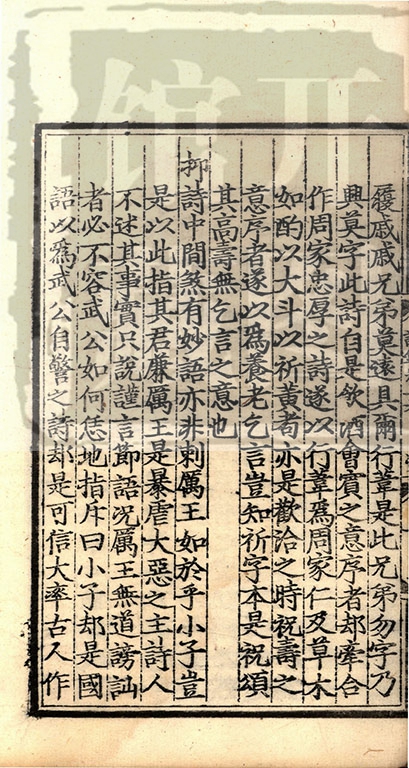 履戚戚兄弟莫遠具爾行葦是此兄弟勿字乃
興莫字此詩自是飲酒會賓之意序者却牽合
作周家忠厚之詩遂以行葦爲周家仁及草木
如酌以大斗以祈黄耇亦是歡洽之時祝壽之
意序者遂以爲養老乞言豈知祈字本是祝頌
其高壽無乞言之意也
抑詩中間煞有妙語亦非刺厲王如於乎小子豈
是以此指其君兼厲王是暴虐大惡之主詩人
不述其事實只說謹言節語况厲王無道謗訕
者必不容武公如何恁地指斥曰小子却是國
語以爲武公自警之詩却是可信大率古人作